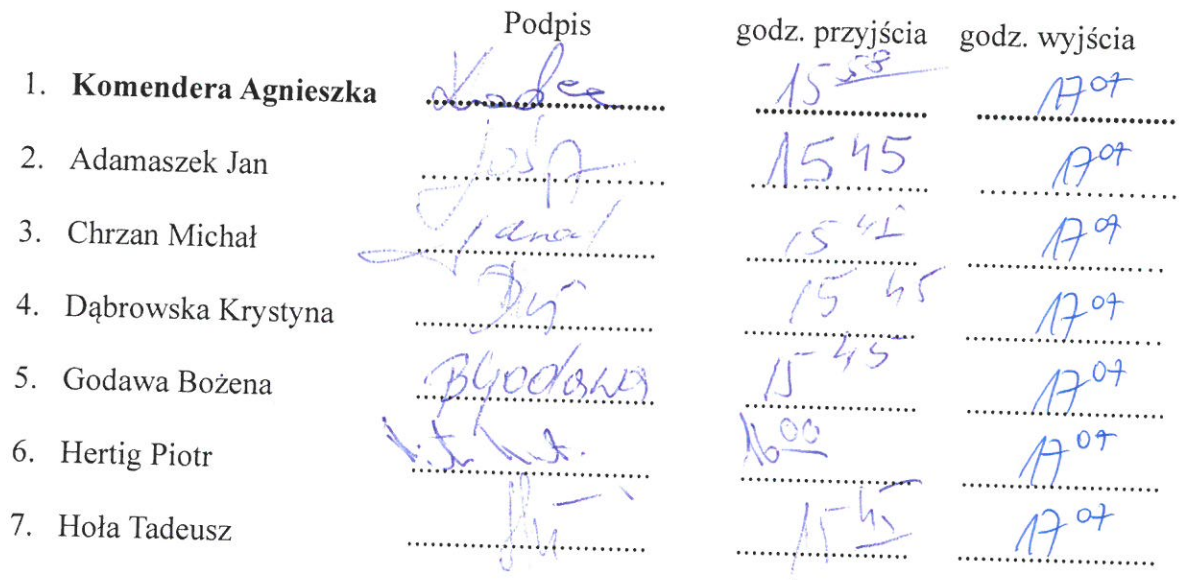 Podpis godz. przyjścia godz. wyjścia
1. Komendera Agnieszka 15 58 17 07
2. Adamaszek Jan 15 45 17 07
3. Chrzan Michał 15 17 07
4. Dąbrowska Krystyna 15 45 17 07
5. Godawa Bożena BGodawa 15 45 17 07
6. Hertig Piotr 16 00 17 07
7. Hoła Tadeusz 15 45 17 07